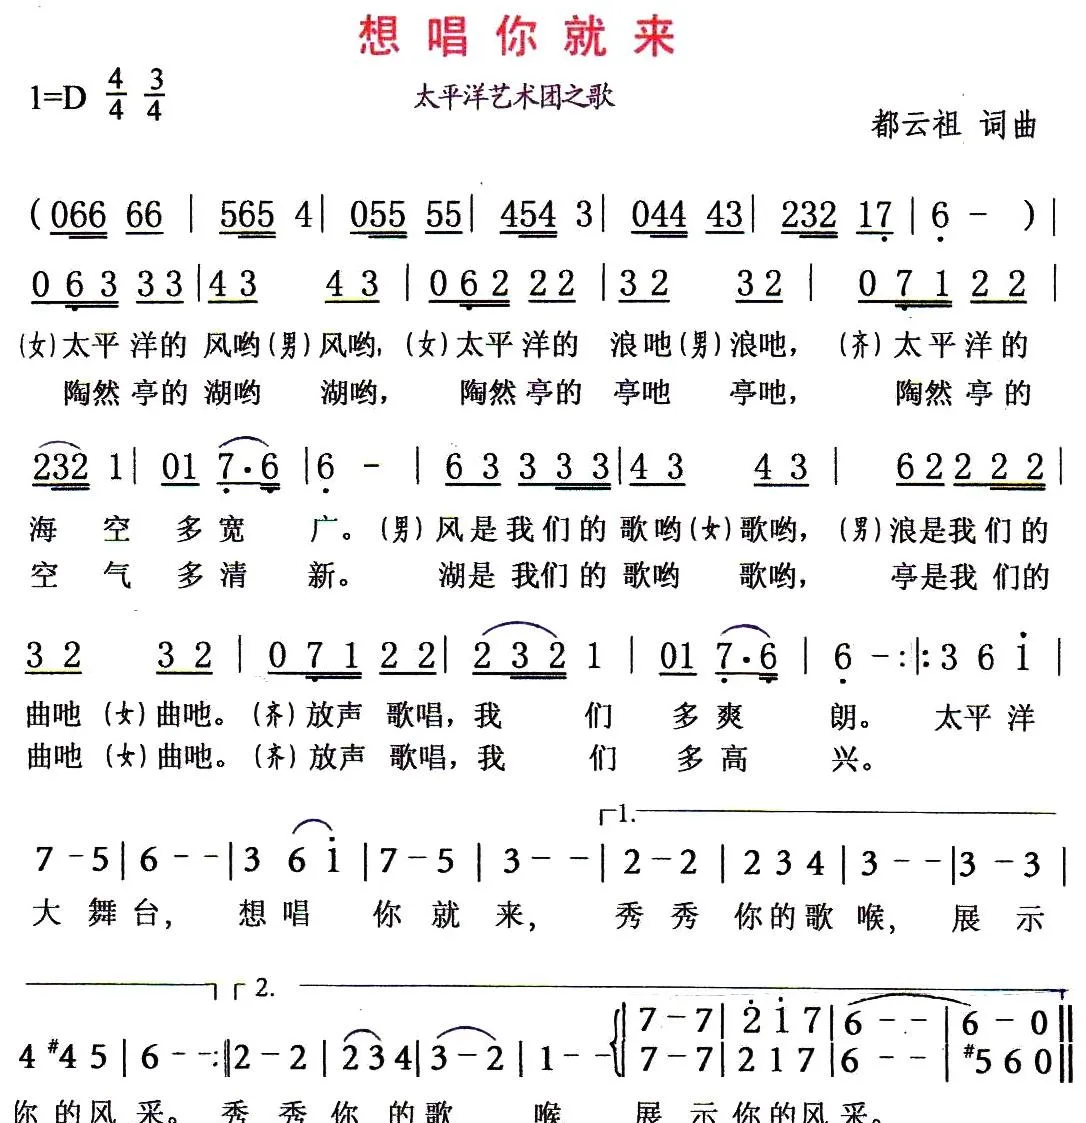 想唱你就来
1=D 4/4 3/4
太平洋艺术团之歌
都云祖 词曲
( 066 66 | 565 4 | 055 55 | 454 3 | 044 43 | 232 17 | 6 - ) |
0 6 3 3 3 | 4 3 4 3 | 0 6 2 2 2 | 3 2 3 2 | 0 7 1 2 2 |
(女)太平洋的 风哟(男)风哟, (女)太平洋的 浪吔(男)浪吔, (齐)太平洋的
陶然亭的 湖哟 湖哟, 陶然亭的 亭吔 亭吔, 陶然亭的
232 1 | 01 7·6 | 6 - | 6 3 3 3 3 | 4 3 4 3 | 6 2 2 2 2 |
海 空 多宽 广。(男)风是我们的歌哟(女)歌哟, (男)浪是我们的
空 气 多清 新。 湖是我们的歌哟 歌哟, 亭是我们的
3 2 3 2 | 0 7 1 2 2 | 2 3 2 1 | 01 7·6 | 6 - :|: 3 6 i |
曲吔 (女)曲吔。(齐)放声 歌唱,我 们 多爽 朗。 太平洋
曲吔 (女)曲吔。(齐)放声 歌唱,我 们 多高 兴。
1.
7 - 5 | 6 - - | 3 6 i | 7 - 5 | 3 - - | 2 - 2 | 2 3 4 | 3 - - | 3 - 3 |
大 舞台, 想唱 你就来, 秀秀你的歌喉, 展示
2.
7 - 7 | 2 i 7 | 6 - - | 6 - 0 ||
4 #4 5 | 6 - - :|| 2 - 2 | 2 3 4 | 3 - 2 | 1 - - | 7 - 7 | 2 1 7 | 6 - - | #5 6 0 ||
你的风采。 秀秀你的歌 喉 展示你的风采。